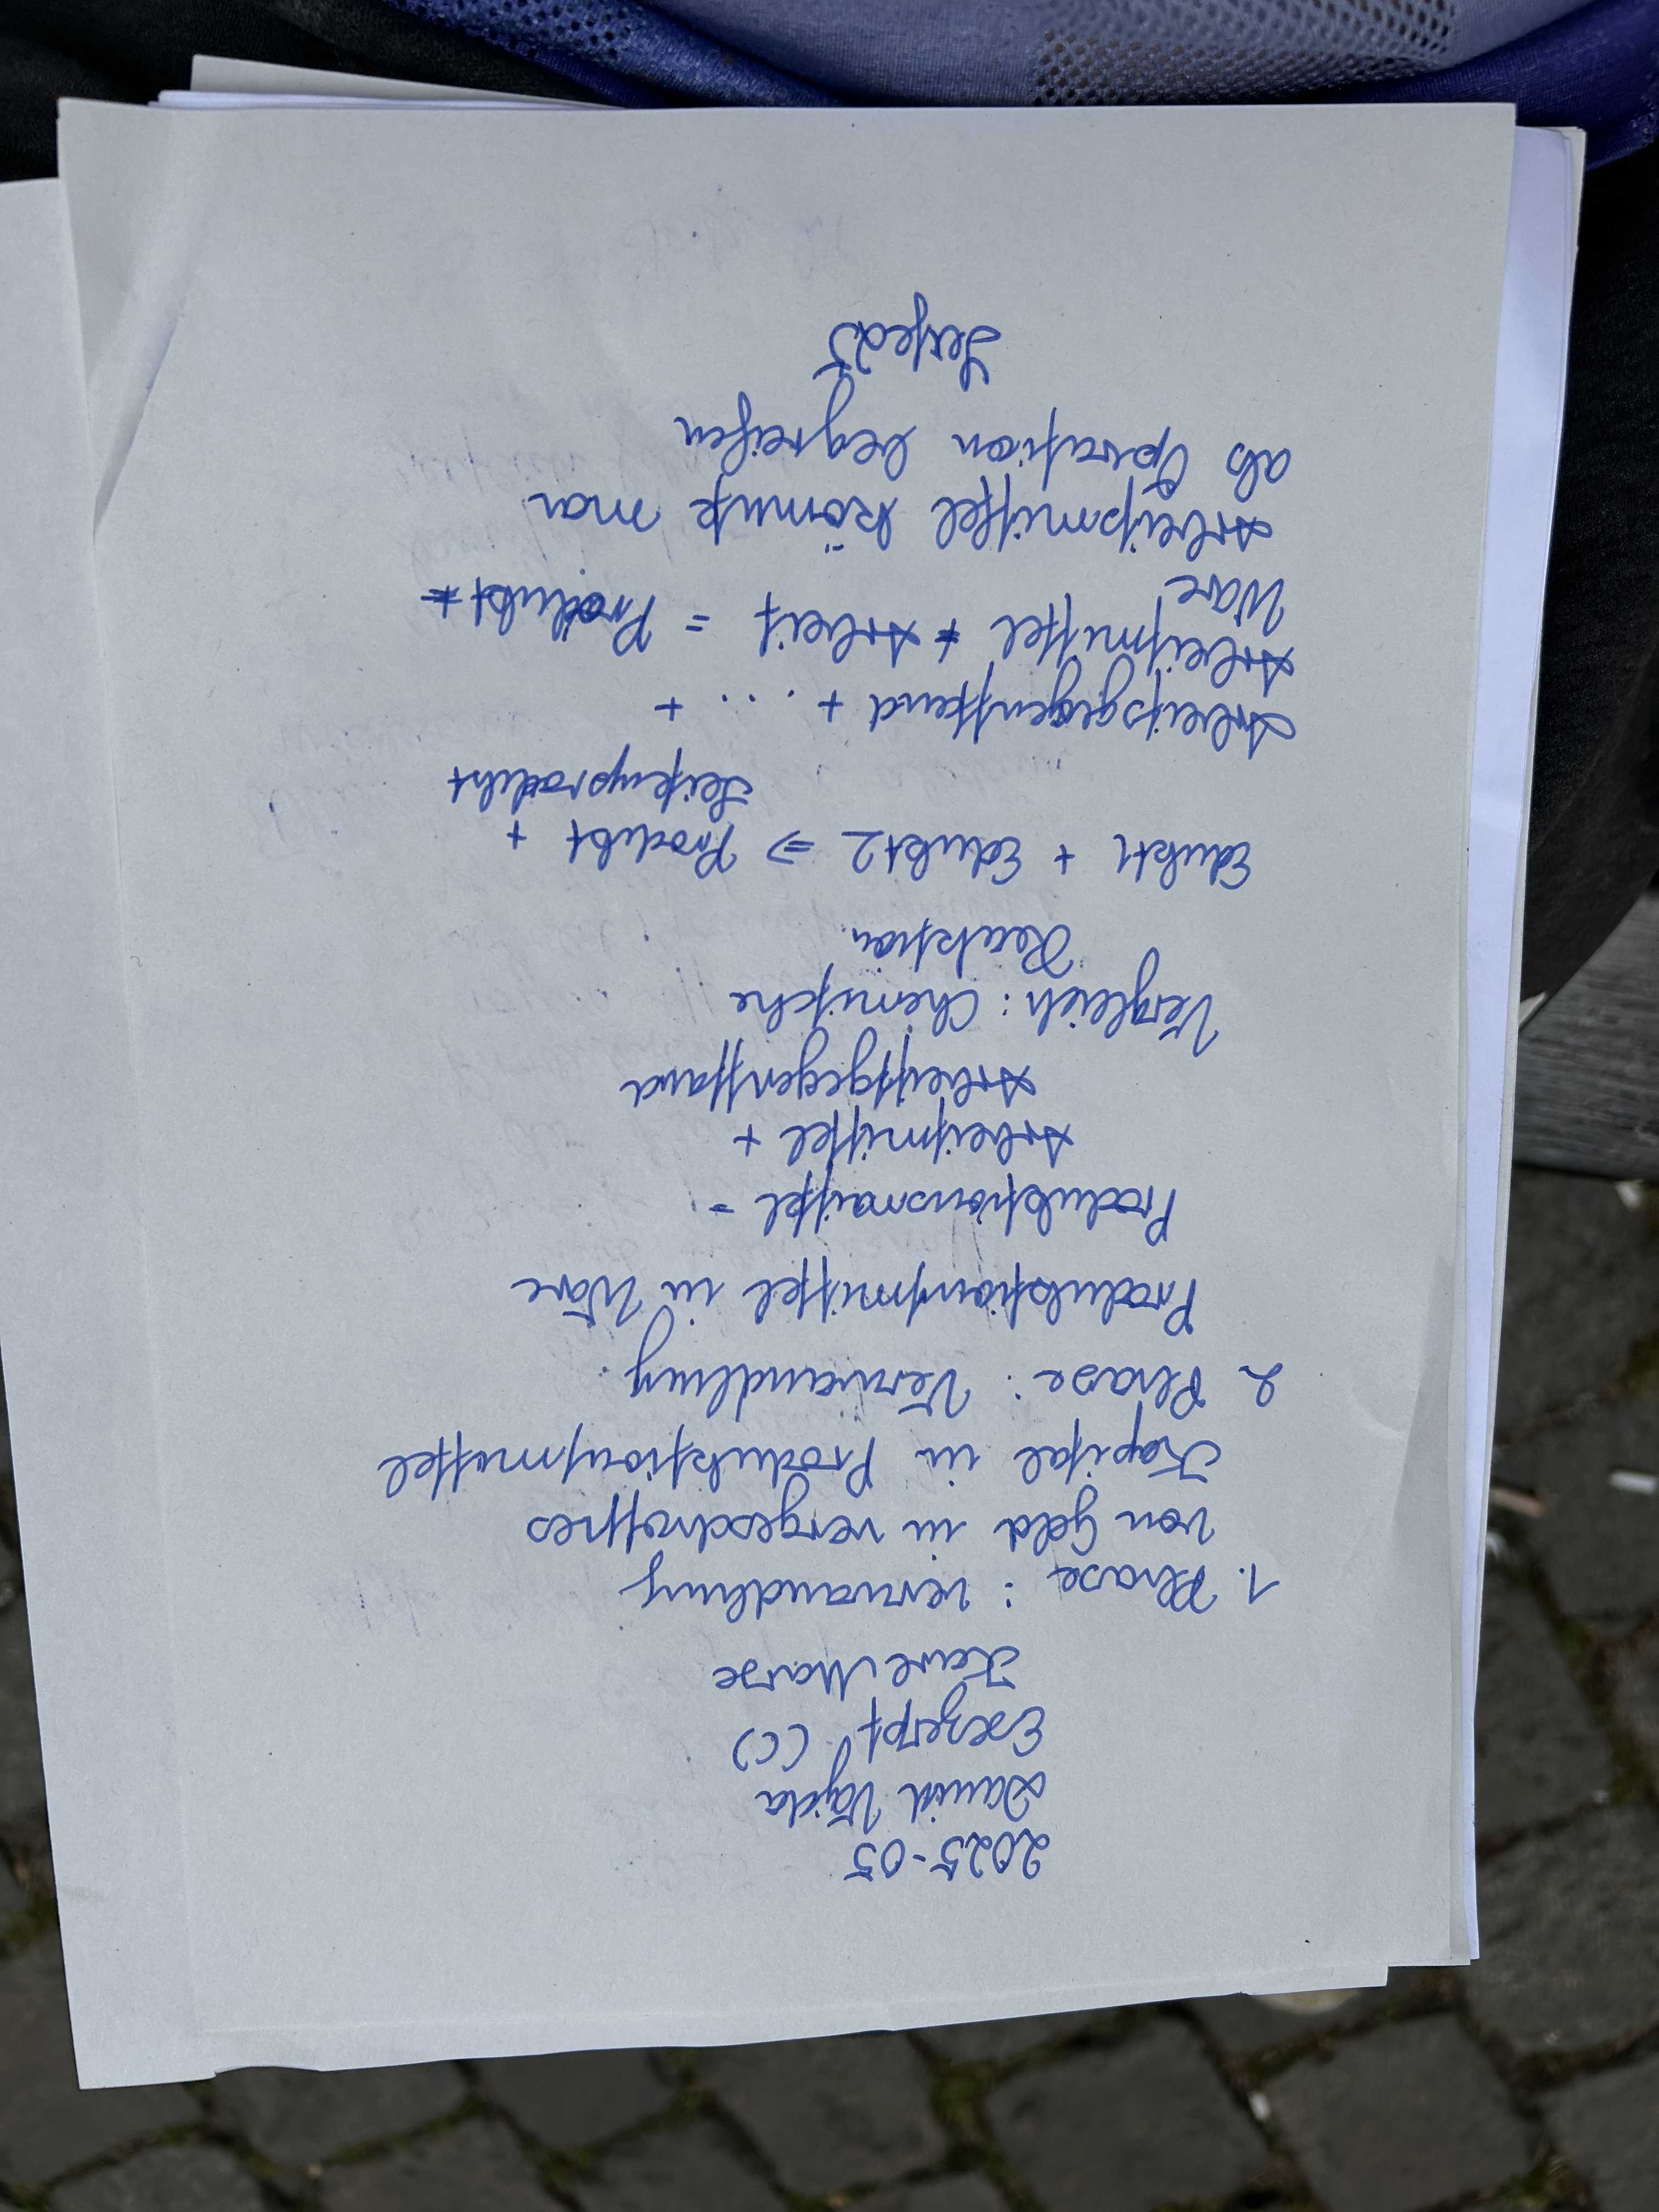 2025-05
David Vajda
Exzerpt (c)
Karl Marx
1. Phase: Verwandlung
von Geld in vorgeschossres
Kapital in Produktionsmittel
2. Phase: Verwandlung
Produktionsmittel in Ware
Produktionsmittel =
Arbeitsmittel +
Arbeitsgegenstand
Vergleich: Chemische
Reaktion
Edukt1 + Edukt2 => Produkt +
Arbeitsgegenstand + ... +
Arbeitsmittel + Arbeit = Produkt +
Ware
Arbeitsmittel könnte man
als Operation begreifen